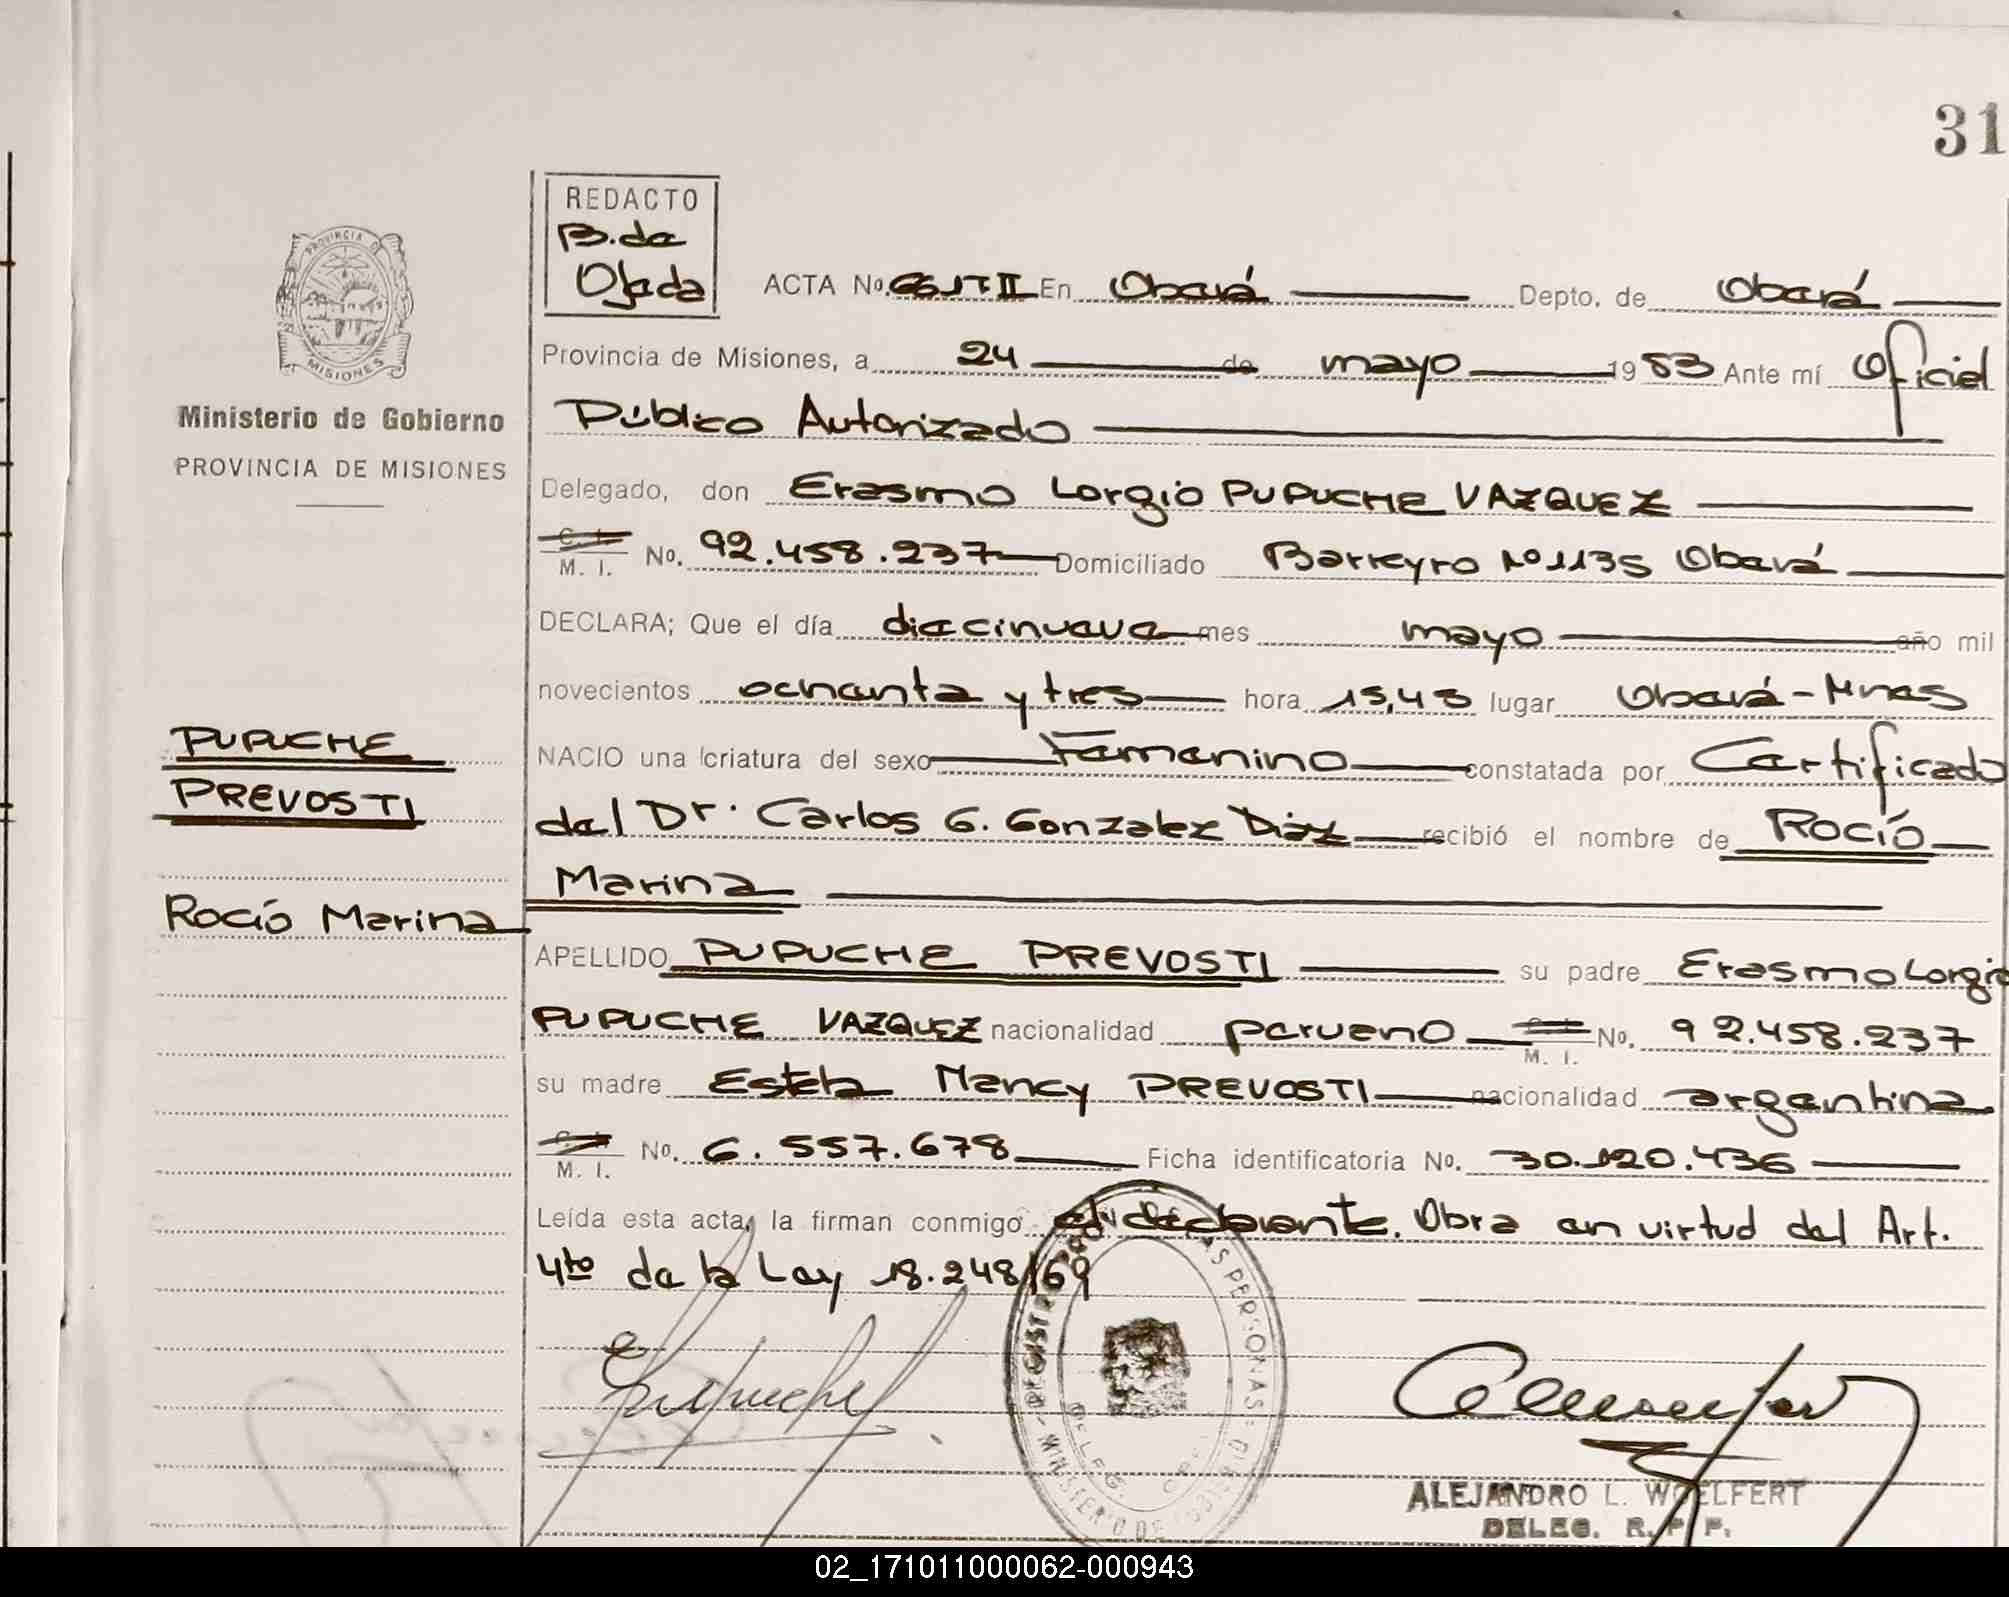 31
REDACTO
B. de
Ojeda
ACTA No. 661 T II En Oberá Depto. de Oberá
PROVINCIA DE
MISIONES
Provincia de Misiones, a 24 de mayo 1983 Ante mí Oficial
Ministerio de Gobierno
Público Autorizado
PROVINCIA DE MISIONES
Delegado, don Erasmo Lorgio PUPUCHE VAZQUEZ
C. I.
M. I. No. 92.458.237 Domiciliado Barreyro Nº 1135 Oberá
DECLARA; Que el día diecinueve mes mayo año mil
novecientos ochenta y tres hora 15,45 lugar Oberá - Mnes
PUPUCHE
NACIO una criatura del sexo Femenino constatada por Certificado
PREVOSTI
del Dr. Carlos G. Gonzalez Diaz recibió el nombre de Rocío
Marina
Rocío Marina
APELLIDO PUPUCHE PREVOSTI su padre Erasmo Lorgio
PUPUCHE VAZQUEZ nacionalidad peruano C. I. M. I. No. 92.458.237
su madre Estela Nancy PREVOSTI nacionalidad argentina
C. I.
M. I. No. 6.557.678 Ficha identificatoria No. 30.120.436
Leída esta acta, la firman conmigo el declarante. Obra en virtud del Art.
4to de la Ley 18.248/69
ALEJANDRO L. WOELFERT
DELEG. R. P. P.
02_171011000062-000943